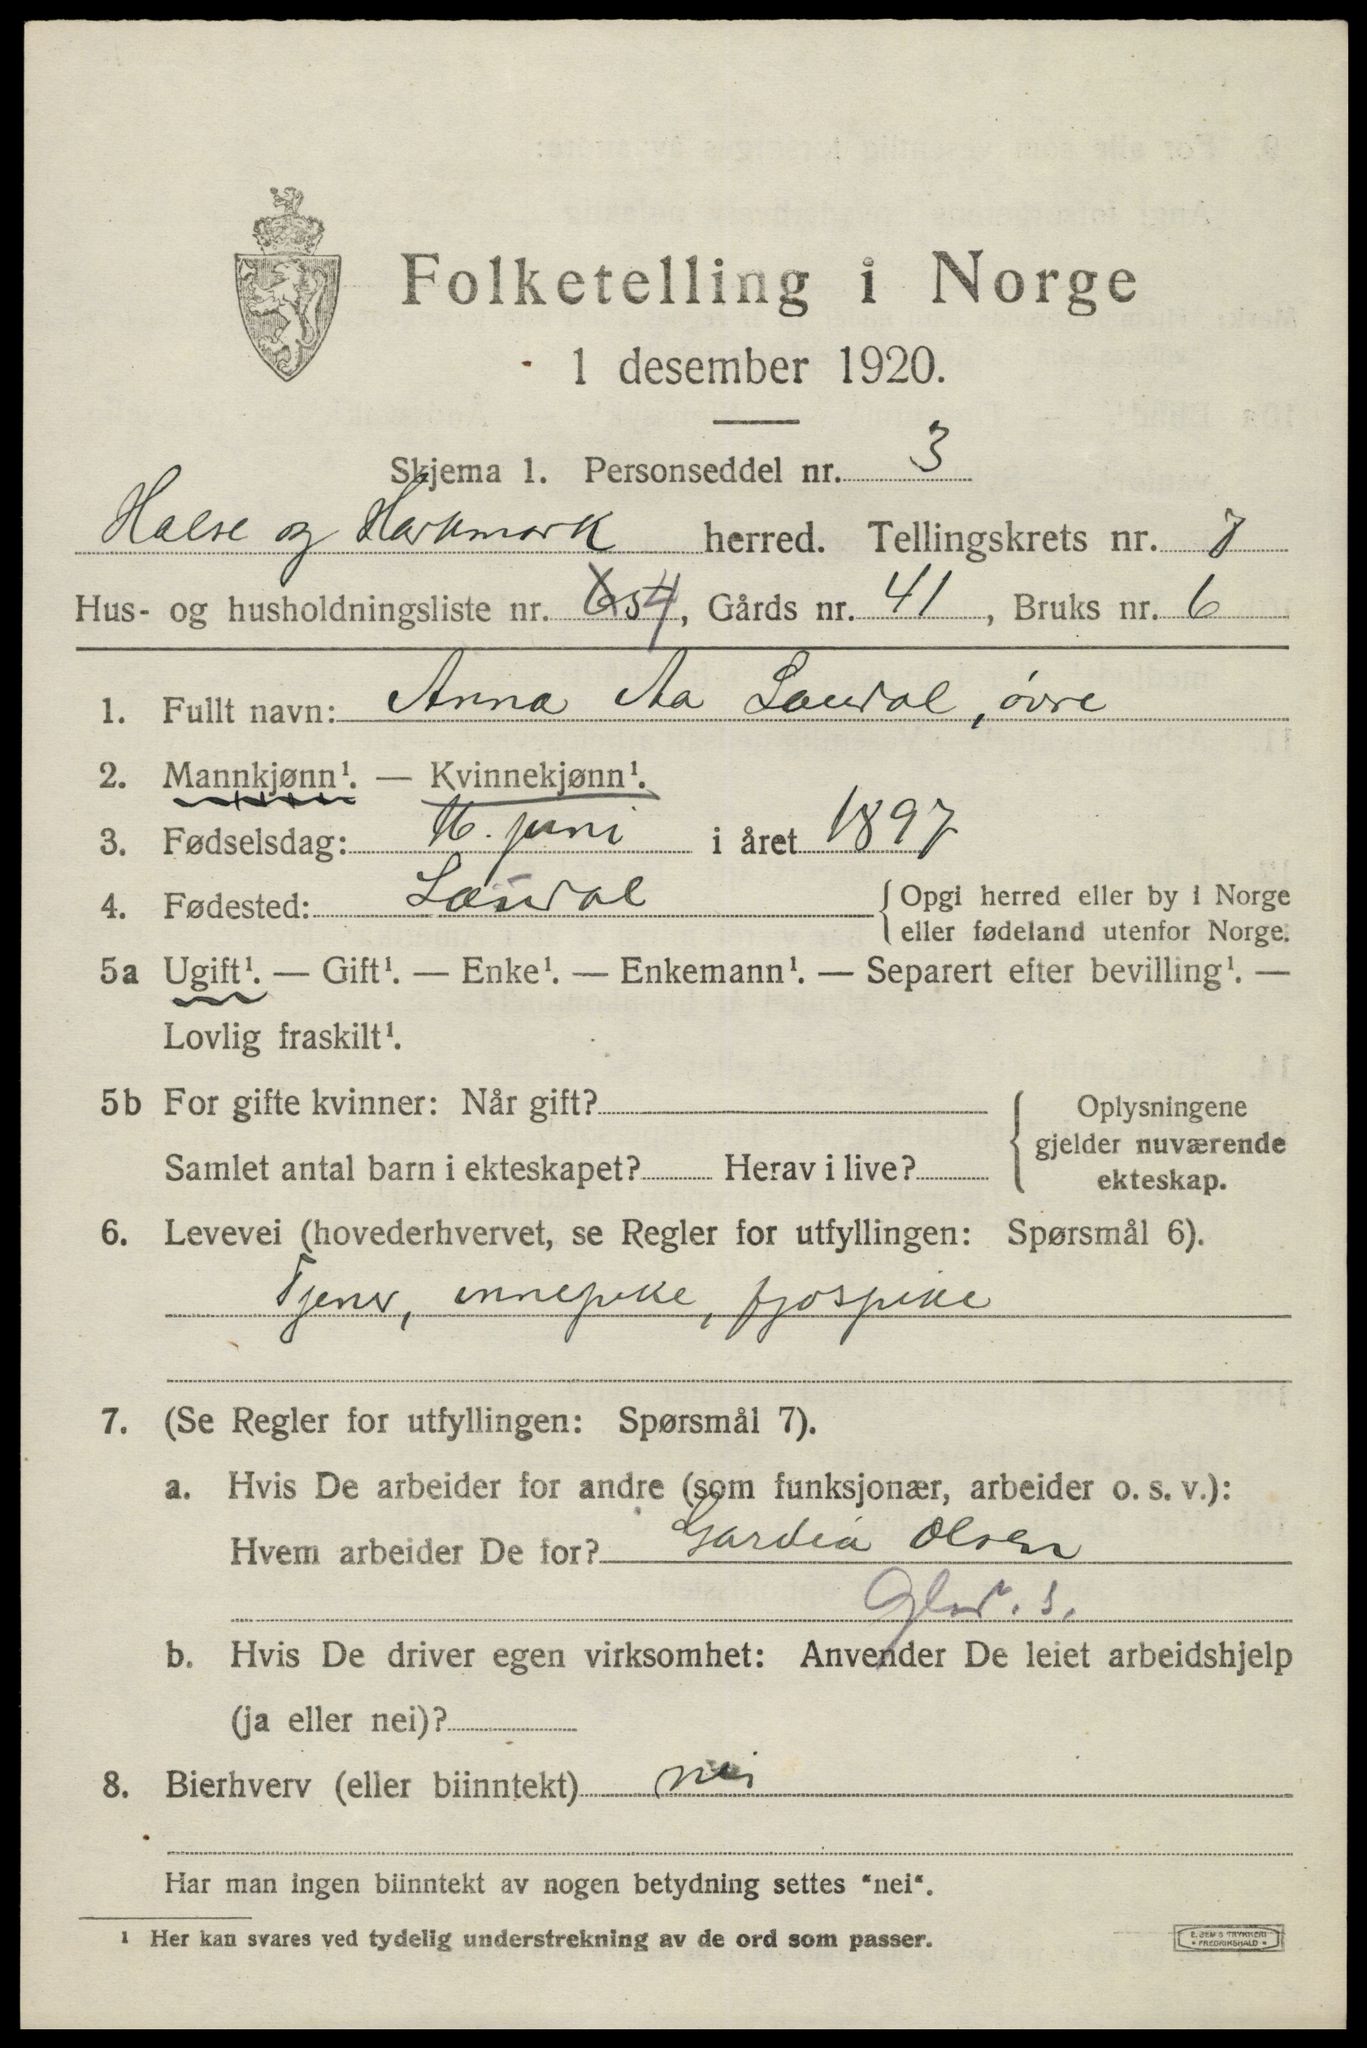 Folketelling i Norge
1 desember 1920.
Skjema 1. Personseddel nr. 3
Halse og Harkmark herred. Tellingskrets nr. 7
Hus- og husholdningsliste nr. 54, Gårds nr. 41, Bruks nr. 6
1. Fullt navn: Anna Aa Laudal, øvre
2. Mannkjønn¹. — Kvinnekjønn¹.
3. Fødselsdag: 16. juni i året 1897
4. Fødested: Laudal {Opgi herred eller by i Norge
eller fødeland utenfor Norge.
5a Ugift¹. — Gift¹. — Enke¹. — Enkemann¹. — Separert efter bevilling¹. —
Lovlig fraskilt¹.
5b For gifte kvinner: Når gift? { Oplysningene
gjelder nuværende
Samlet antal barn i ekteskapet? Herav i live? ekteskap.
6. Levevei (hovederhvervet, se Regler for utfyllingen: Spørsmål 6).
Tjener, innepike, fjøspike
7. (Se Regler for utfyllingen: Spørsmål 7).
a. Hvis De arbeider for andre (som funksjonær, arbeider o. s. v.):
Hvem arbeider De for? Olsen
b. Hvis De driver egen virksomhet: Anvender De leiet arbeidshjelp
(ja eller nei)?
8. Bierhverv (eller biinntekt) nei
Har man ingen biinntekt av nogen betydning settes "nei".
¹ Her kan svares ved tydelig understrekning av de ord som passer.
E. SEM'S TRYKKERI
FREDRIKSHALD